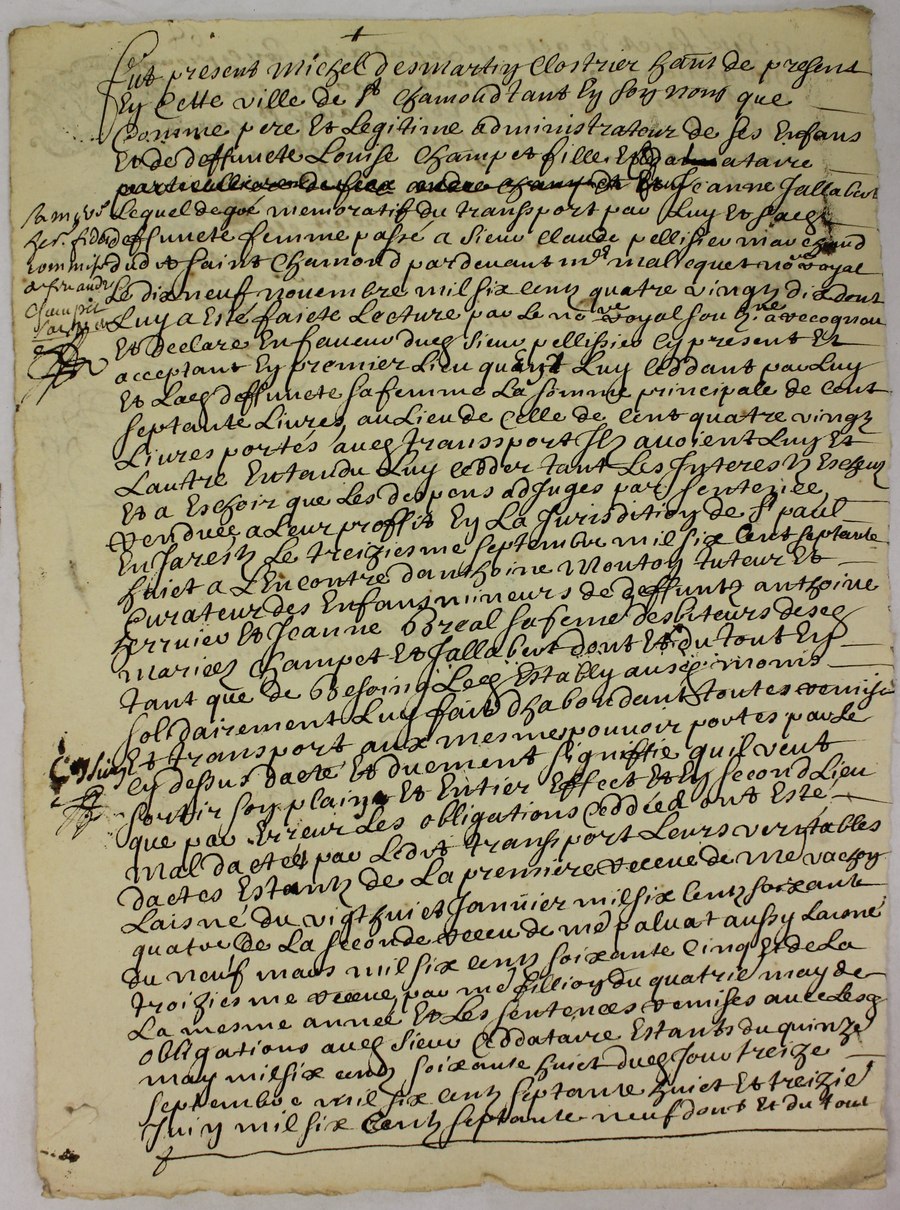 Fut present Michel desmartin Clostrier hānt de present
En Cette ville de St Chamond tant En son nom que
Comme pere Et Legitime administrateur de ses Enfans
Et de deffuncte Louise Champet fille Et donataire
particulliere de feu Et Jeanne Jallabert
Lequel de gré memoratif du transport par Luy Et
deffuncte femme passé a Sieur Claude pellissier marchand
dudt Saint Chamond pardevant me mallequet nore royal
Le dixneuf novembre mil six centz quatre vingtz dix dont
Luy a Esté faicte Lecture par le nore royal soubzné a recognou
Et declare En faveur dud Sieur pellissier Cy present Et
acceptant En premier Lieu quayant Luy ceddant par Luy
Et Lad deffuncte sa femme La somme principale de Cent
septante Livres, au Lieu de Celle de Cent quatre vingtz
Livres portés aud transsport Ilz avoient Luy Et
Lautre Entandu Luy cedder tant Les Interestz Escheuz
Et a Eschoir que Les despens adjuges par sentence
rendue a Leur proffit En La Jurisdition de St paul
En Jarestz Le treiziesme septembre mil six Cent septante
huict a L'Encontre danthoine Mouton tuteur Et
Curateur des Enfans mineurs de deffuntz anthoine
Et Jeanne sa feme desbiteurs desd
maries Champet Et Jallabert dont Et du tout En
tant que de Besoing Led Estably ausd noms
solidairement Luy fait dhabondant toutes remise
Et transport aux mesme pouvoir portes par Le
cy dessus dacté Et duement signiffie quil veut
sortir son plain Et Entier Effect Et En second Lieu
que par Erreur Les obligations Ceddées ont Esté
mal dactée par Ledt transport Leurs veritables
dactes Estantz de La premiere receue de me vachon
Laisné du vigt huict Janvier mil six Centz soixante
quatre De La seconde receu de me paluat aussy Laisné
du neuf mars mil six centz soixante Cinq Et de La
troiziesme receue par me fillion du quatrie may de
La mesme année Et Les sentences remises avec Lesd
obligations aud Sieur Ceddataire Estants du quinze
may mil six centz soixante huict dud Jour treize
septembre mil six Centz septante huict Et treizie
Juin mil six Centz septante neuf dont Et du tout